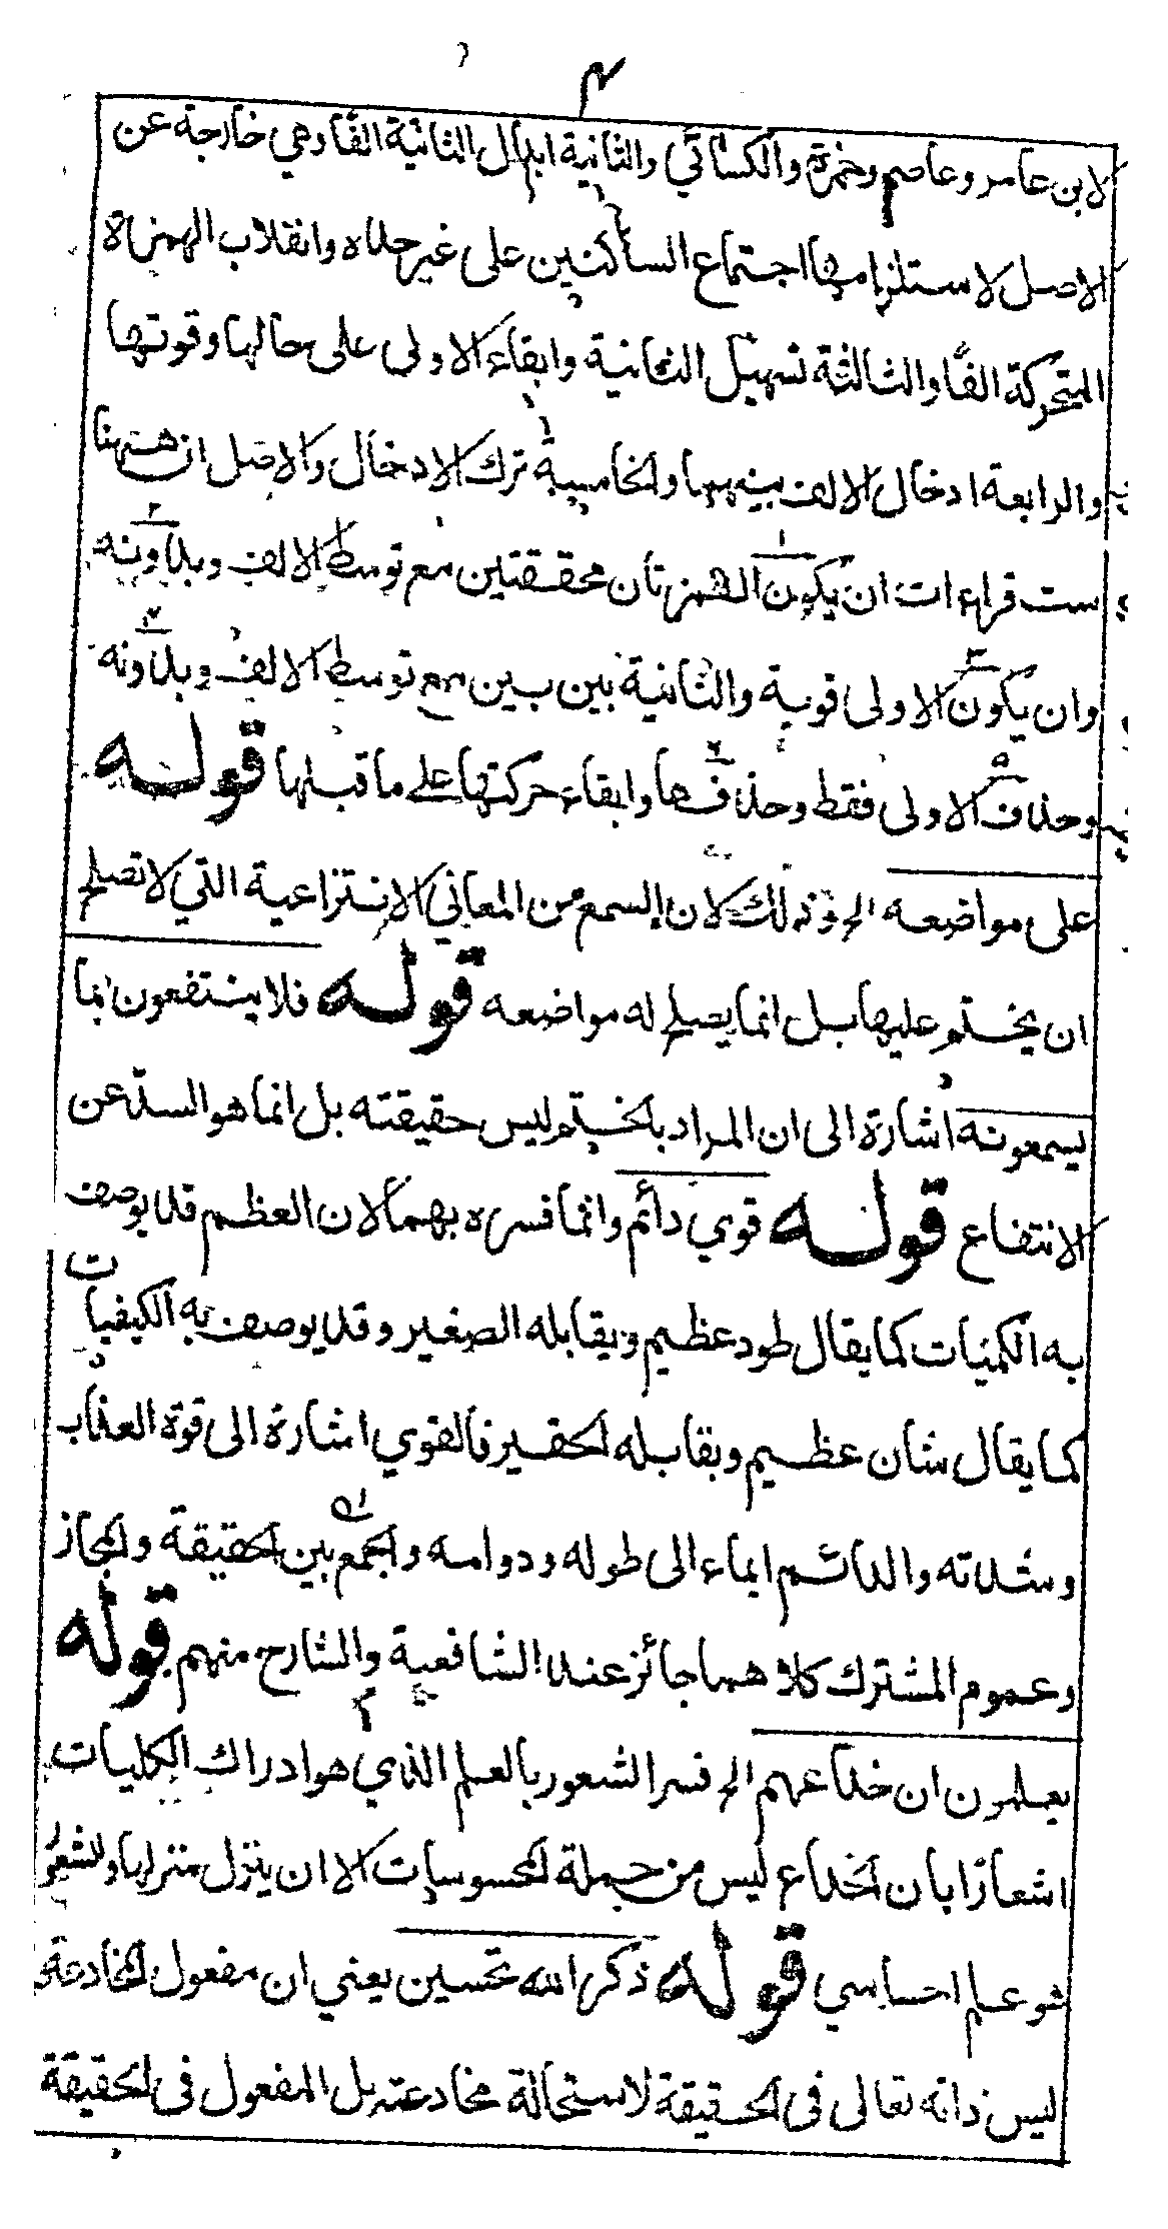 ٣
لابن عامر وعاصم وحمزة والكسائي والثانية ابدال الثانية الفا وهي خارجة عن
الاصل لاستلزامها اجتماع الساكنين على غير حده وانقلاب الهمزة
المتحركة الفا والثالثة تسهيل الثانية وابقاء الاولى على حالها وقوتها
والرابعة ادخال الالف بينهما والخامسة ترك الادخال والاصل ان ههنا
ست قراءات ان يكون الهمزتان محققتين مع توسط الالف وبدونه
وان يكون الاولى قوية والثانية بين بين مع توسط الالف وبدونه
وحذف الاولى فقط وحذفها وابقاء حركتها على ما قبلها قوله
على مواضعه الخ وذلك لان السمع من المعاني الانتزاعية التي لا تصلح
ان يختم عليها بل انما يصلح له مواضعه قوله فلا ينتفعون بما
يسمعونه اشارة الى ان المراد بالختم ليس حقيقته بل انما هو السد عن
الانتفاع قوله قوي دائم وانما فسره بهما لان العظم قد يوصف
به الكميات كما يقال طود عظيم ويقابله الصغير وقد يوصف به الكيفيات
كما يقال شان عظيم ويقابله الحقير فالقوي اشارة الى قوة العذاب
وشدته والدائم ايماء الى طوله ودوامه والجمع بين الحقيقة والمجاز
وعموم المشترك كلاهما جائز عند الشافعية والشارح منهم قوله
يعلمون ان خداعهم الخ فسر الشعور بالعلم الذي هو ادراك الكليات
اشعارا بان الخداع ليس من جملة المحسوسات الا ان ينزل منزلها والشعور
هو علم احساسي قوله ذكر الله تحسين يعني ان مفعول المخادعة
ليس ذاته تعالى في الحقيقة لاستحالة مخادعته بل المفعول في الحقيقة